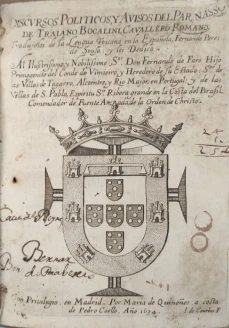 DISCVRSOS POLITICOS, Y AVISOS DEL PARNASSO
DE TRAJANO BOCALINI, CAVALLERO ROMANO.
Traduxolos de la Lengua Toscana en la Española, Fernando Peres
de Sousa, y los Dedica
Al Illustrissimo, y Nobilissimo Sr. Don Fernando de Faro Hijo
Primogenito del Conde de Vimieiro, y Heredero de su Estado. Sr. de
las Villas de Tagarro, Alcoentre, y Rio Major, en Portugal, y de las
Villas de S. Pablo, Espiritu Sto. Ribera grande en la Costa del Brasil,
Comendador de Fuente Arcada de la Orden de Christo.
Con Privilegio, en Madrid. Por Maria de Quiñones a costa
de Pedro Coello. Año 1634.